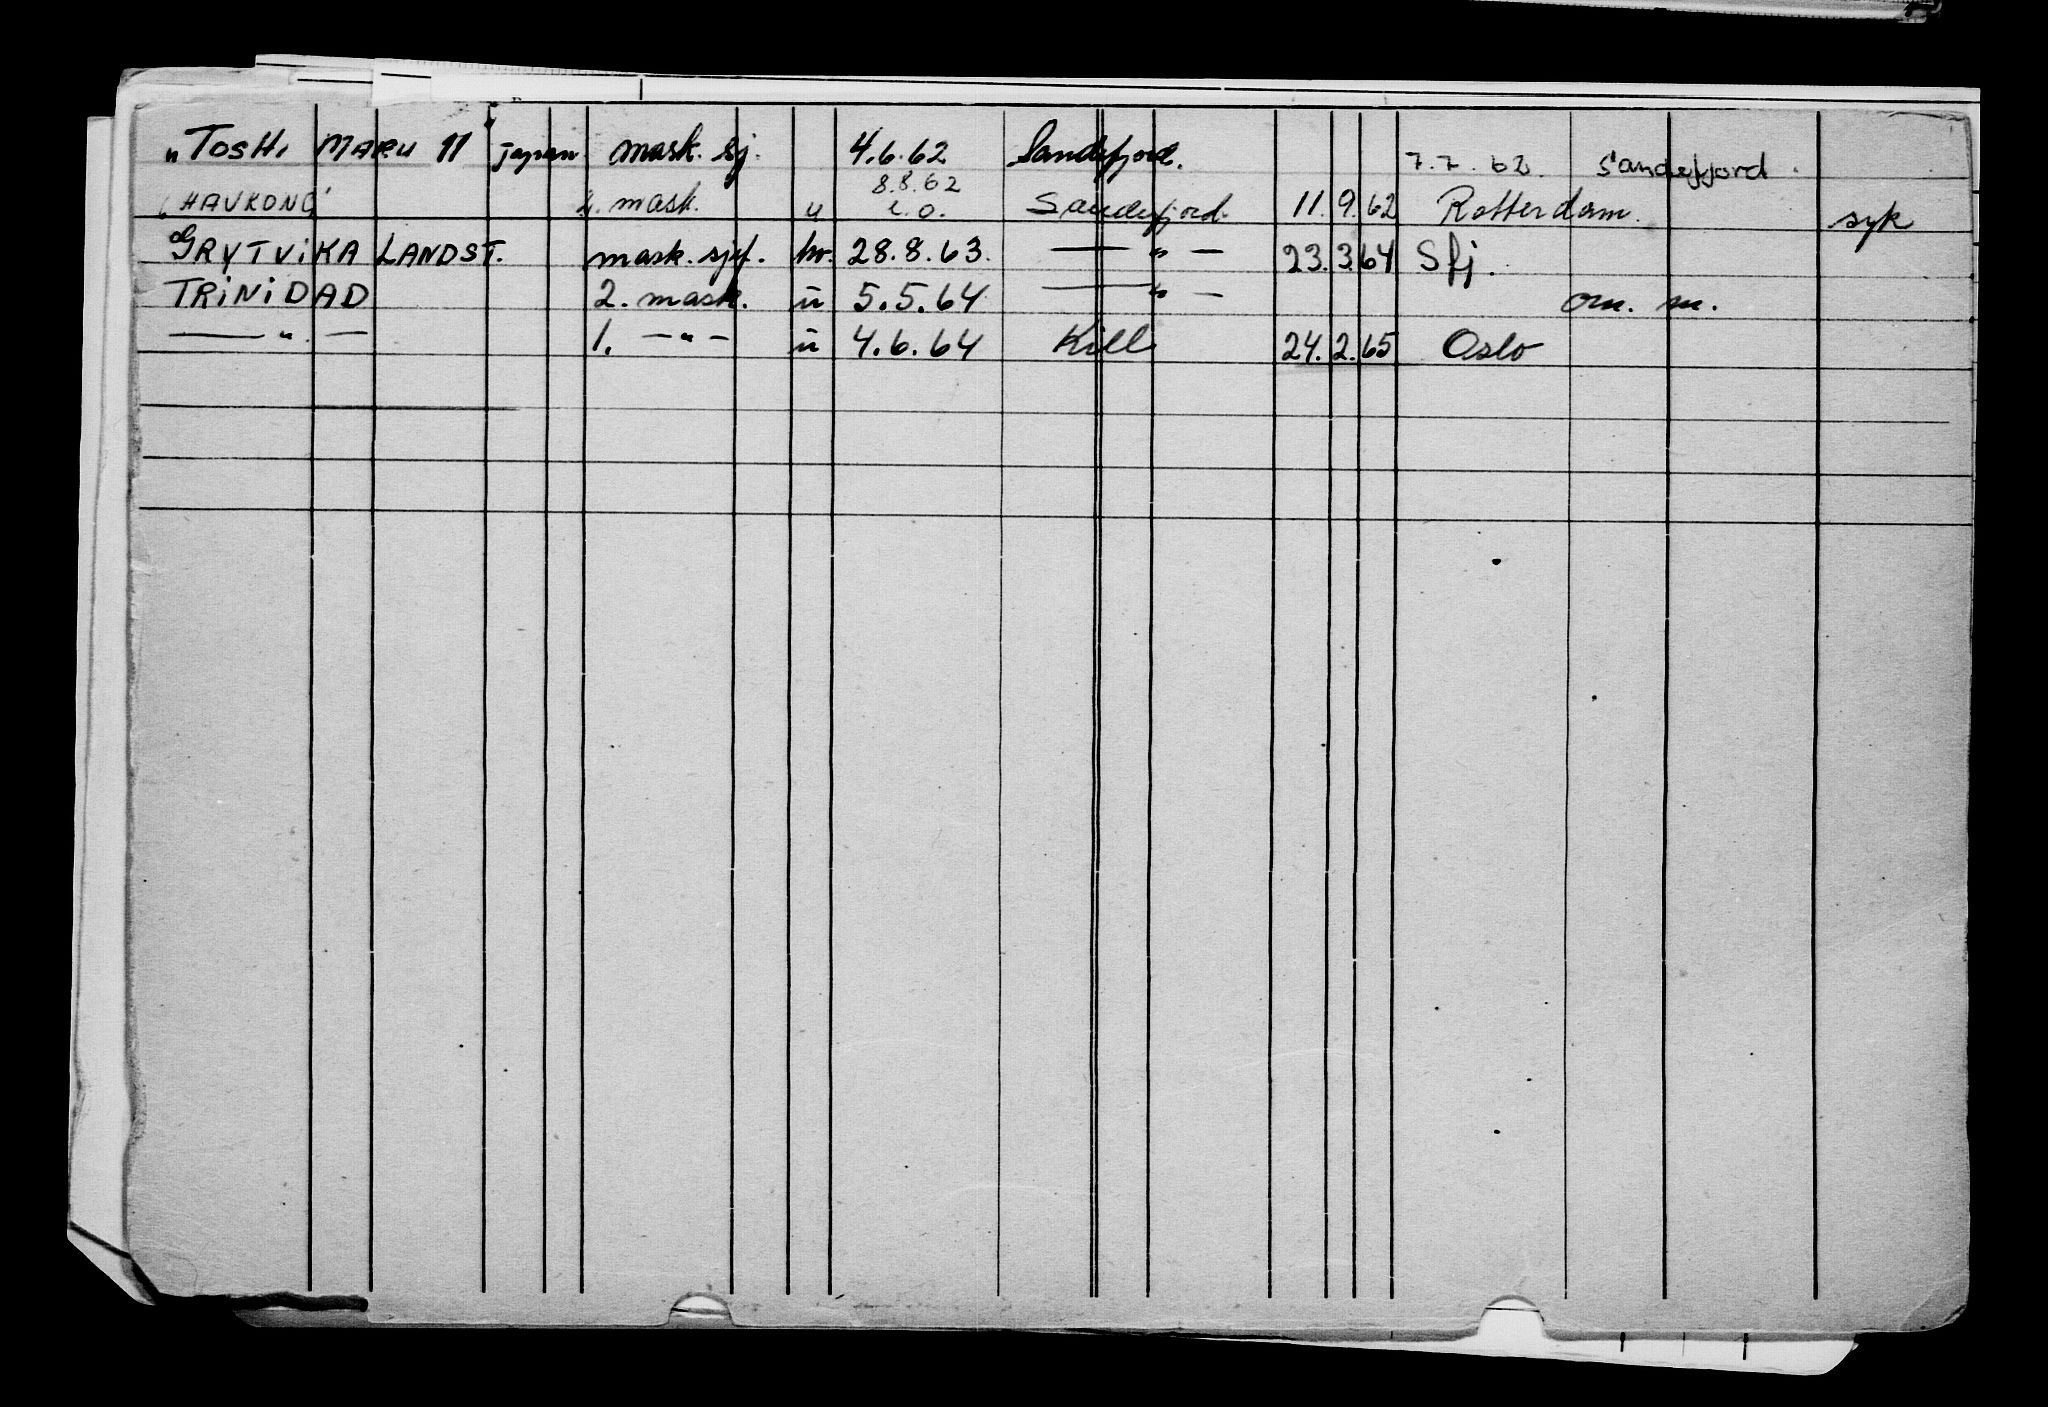 "TOSHI MARU 11" japan mask. sj. 4.6.62 Sandefjord. 7.7.62. Sandefjord.
"HAVKONG" 2. mask. u 8.8.62 e.o. Sandefjord. 11.9.62 Rotterdam. syk
GRYTVIKA LANDST. mask. sjef. hv. 28.8.63. — " — 23.3.64 Sfj.
TRINIDAD 2. mask. u 5.5.64 — " — om. m.
— " — 1. — " — u 4.6.64 Kiel 24.2.65 Oslo